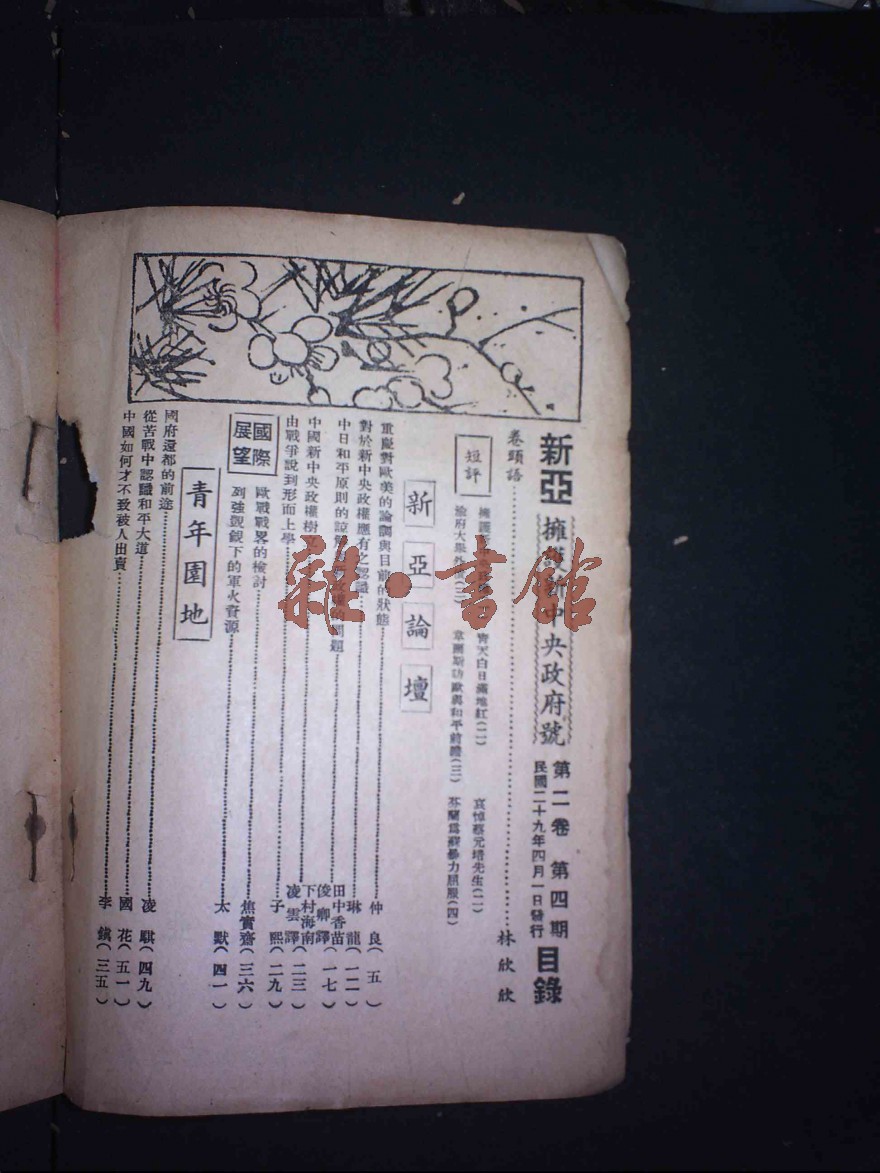 新亞 擁護新中央政府號 第二卷 第四期 目錄
民國二十九年四月一日發行
卷頭語 林欣欣
短評
青天白日滿地紅(二) 哀悼蔡元培先生(二)
渝府大舉 韋爾斯訪歐與和平前途(三) 芬蘭爲 暴力屈服(四)
新亞論壇
重慶對歐美的論調與目前的狀態 仲良(五)
對於新中央政權應有之認識 琳龍(一二)
中日和平原則的諒 問題 田中香苗 俊卿譯(一七)
中國新中央政權樹立 下村海南 凌雲譯(二三)
由戰爭說到形而上學 子熙(二九)
國際展望
歐戰戰畧的檢討 焦實齋(三六)
列強觀覦下的軍火資源 太默(四一)
青年園地
國府還都的前途 凌騏(四九)
從苦戰中認識和平大道 國花(五一)
中國如何才不致被人出賣 李鎮(三五)
雜·書館